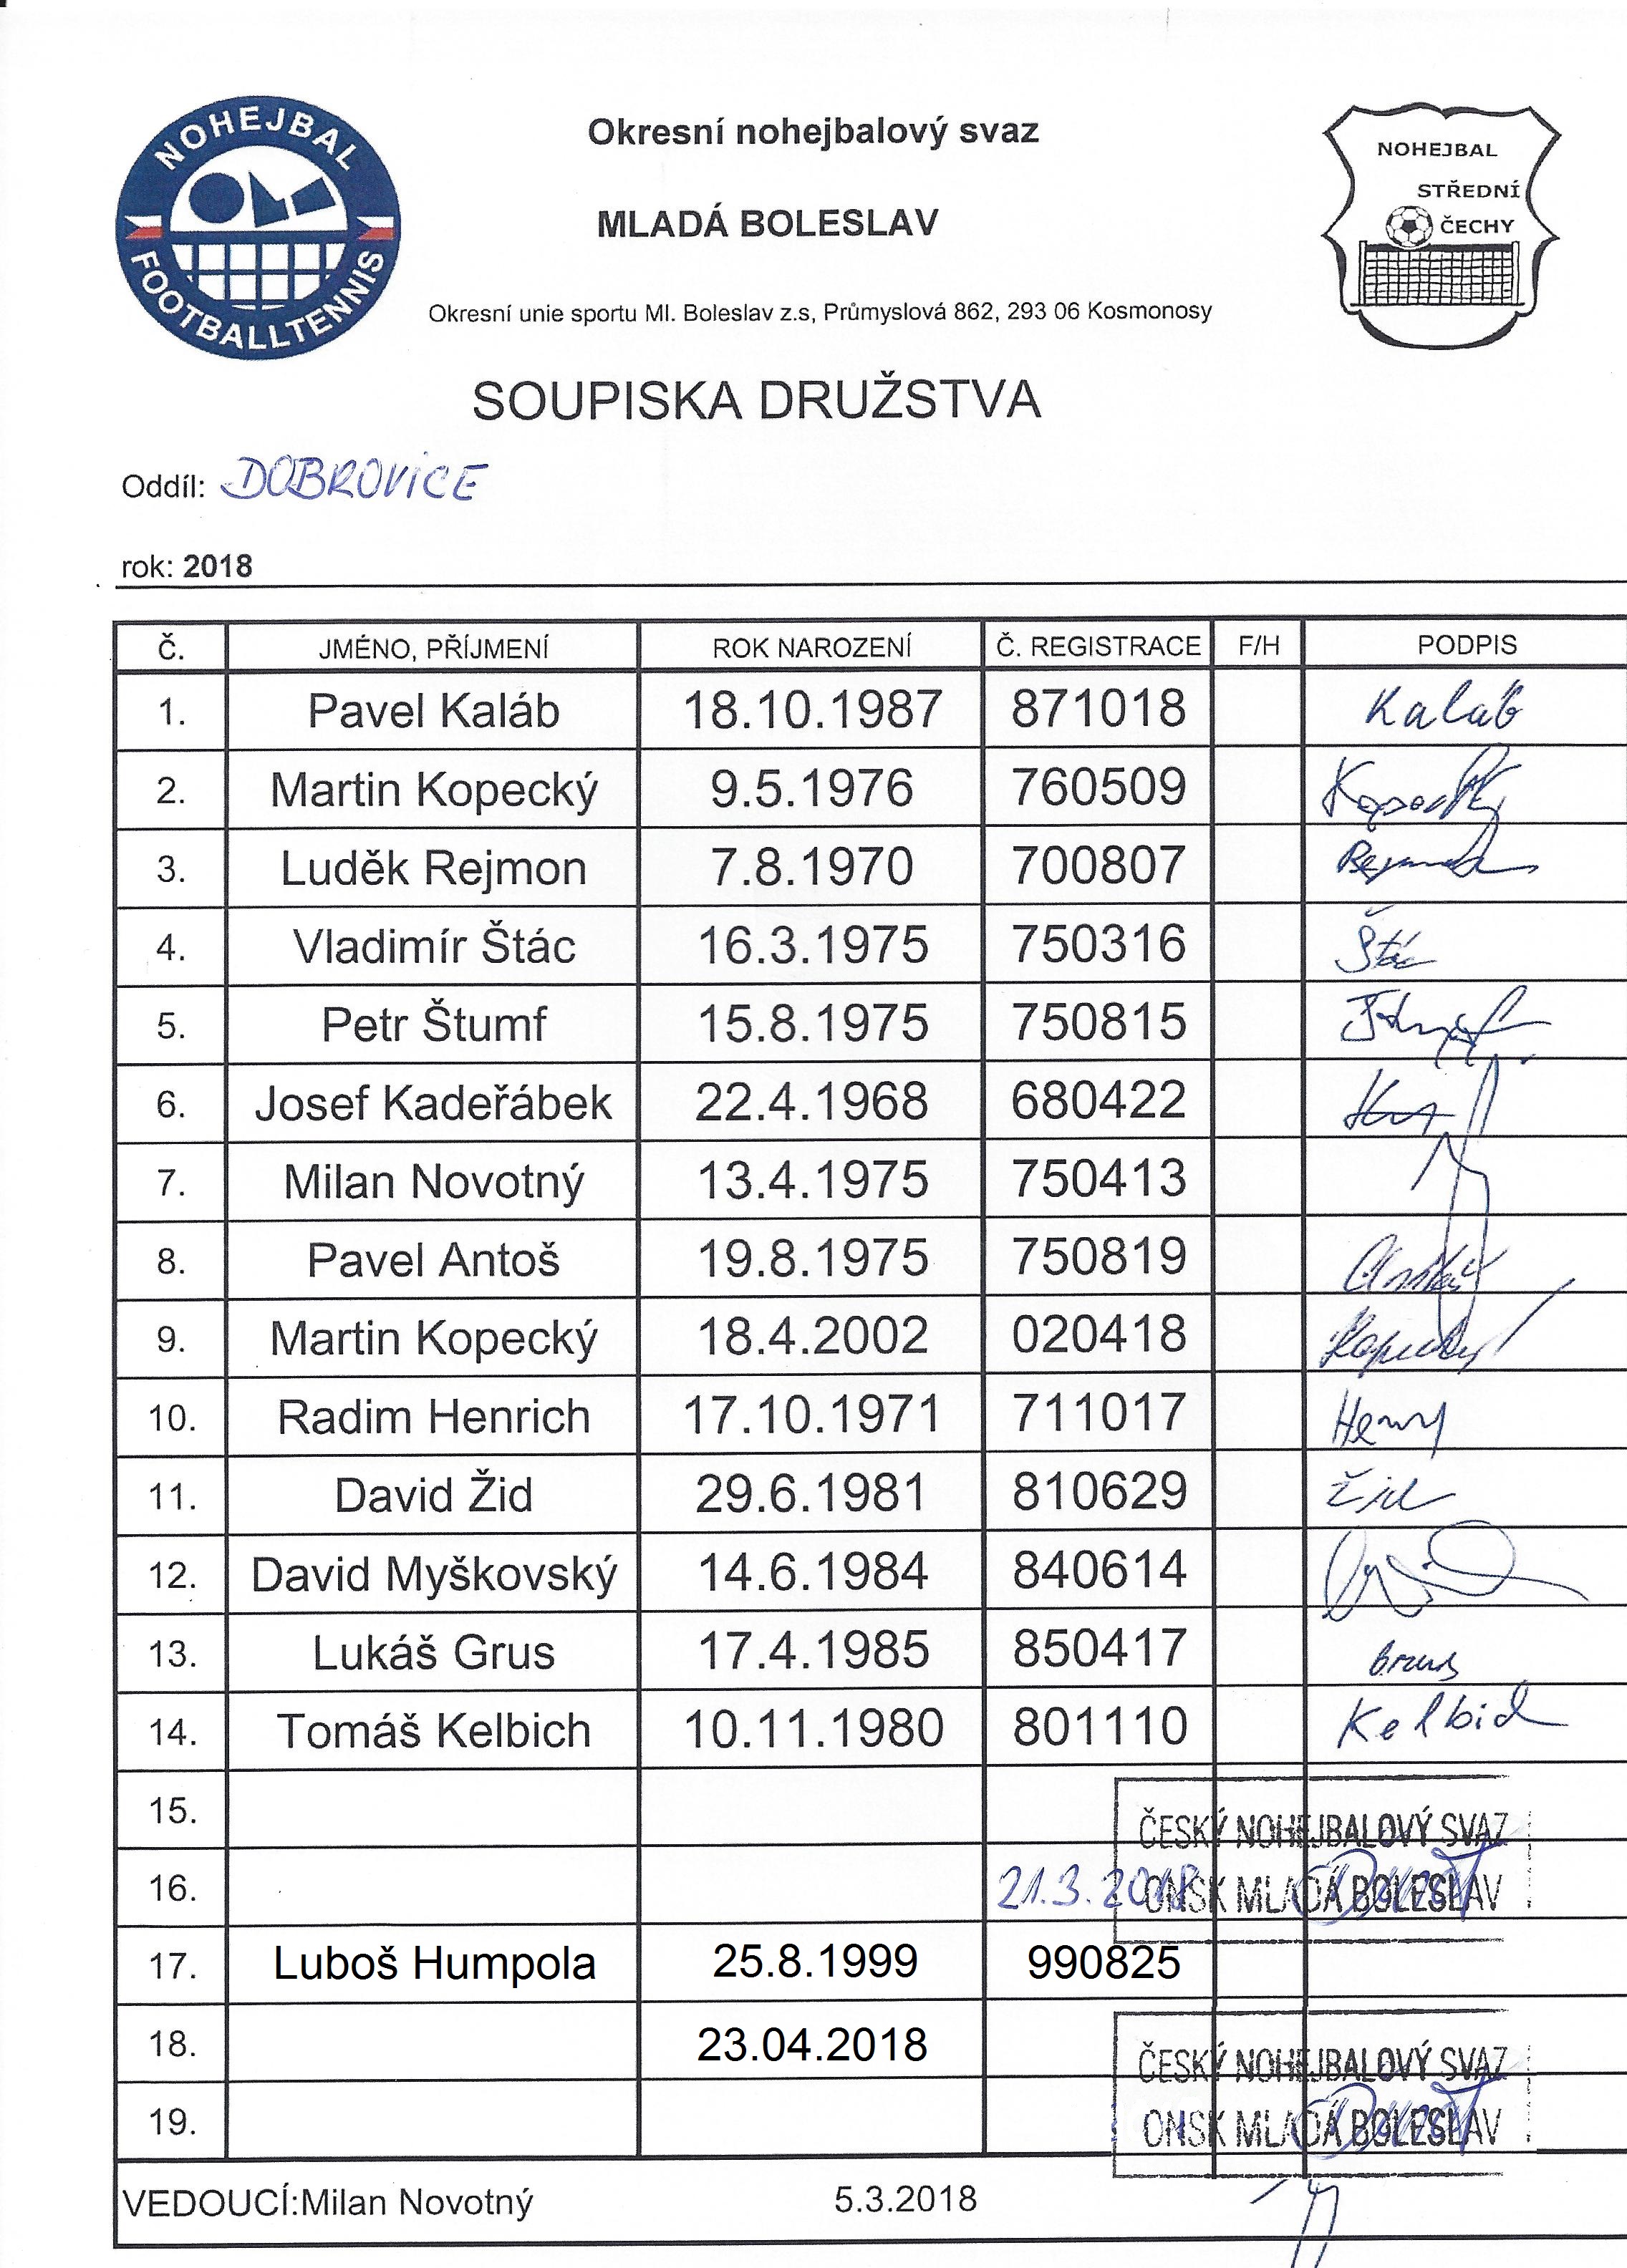 NOHEJBAL
FOOTBALLTENNIS
Okresní nohejbalový svaz
MLADÁ BOLESLAV
Okresní unie sportu Ml. Boleslav z.s, Průmyslová 862, 293 06 Kosmonosy
NOHEJBAL
STŘEDNÍ
ČECHY
SOUPISKA DRUŽSTVA
Oddíl: DOBROVICE
rok: 2018
Č. JMÉNO, PŘÍJMENÍ ROK NAROZENÍ Č. REGISTRACE F/H PODPIS
1. Pavel Kaláb 18.10.1987 871018 Kaláb
2. Martin Kopecký 9.5.1976 760509 Kopecký
3. Luděk Rejmon 7.8.1970 700807
4. Vladimír Štác 16.3.1975 750316 Štác
5. Petr Štumf 15.8.1975 750815
6. Josef Kadeřábek 22.4.1968 680422
7. Milan Novotný 13.4.1975 750413
8. Pavel Antoš 19.8.1975 750819
9. Martin Kopecký 18.4.2002 020418 Kopecký
10. Radim Henrich 17.10.1971 711017
11. David Žid 29.6.1981 810629 Žid
12. David Myškovský 14.6.1984 840614
13. Lukáš Grus 17.4.1985 850417 Grus
14. Tomáš Kelbich 10.11.1980 801110
15.
ČESKÝ NOHEJBALOVÝ SVAZ
16. 21.3.2018
ONSK MLADÁ BOLESLAV
17. Luboš Humpola 25.8.1999 990825
18. 23.04.2018
ČESKÝ NOHEJBALOVÝ SVAZ
19.
ONSK MLADÁ BOLESLAV
VEDOUCÍ:Milan Novotný 5.3.2018